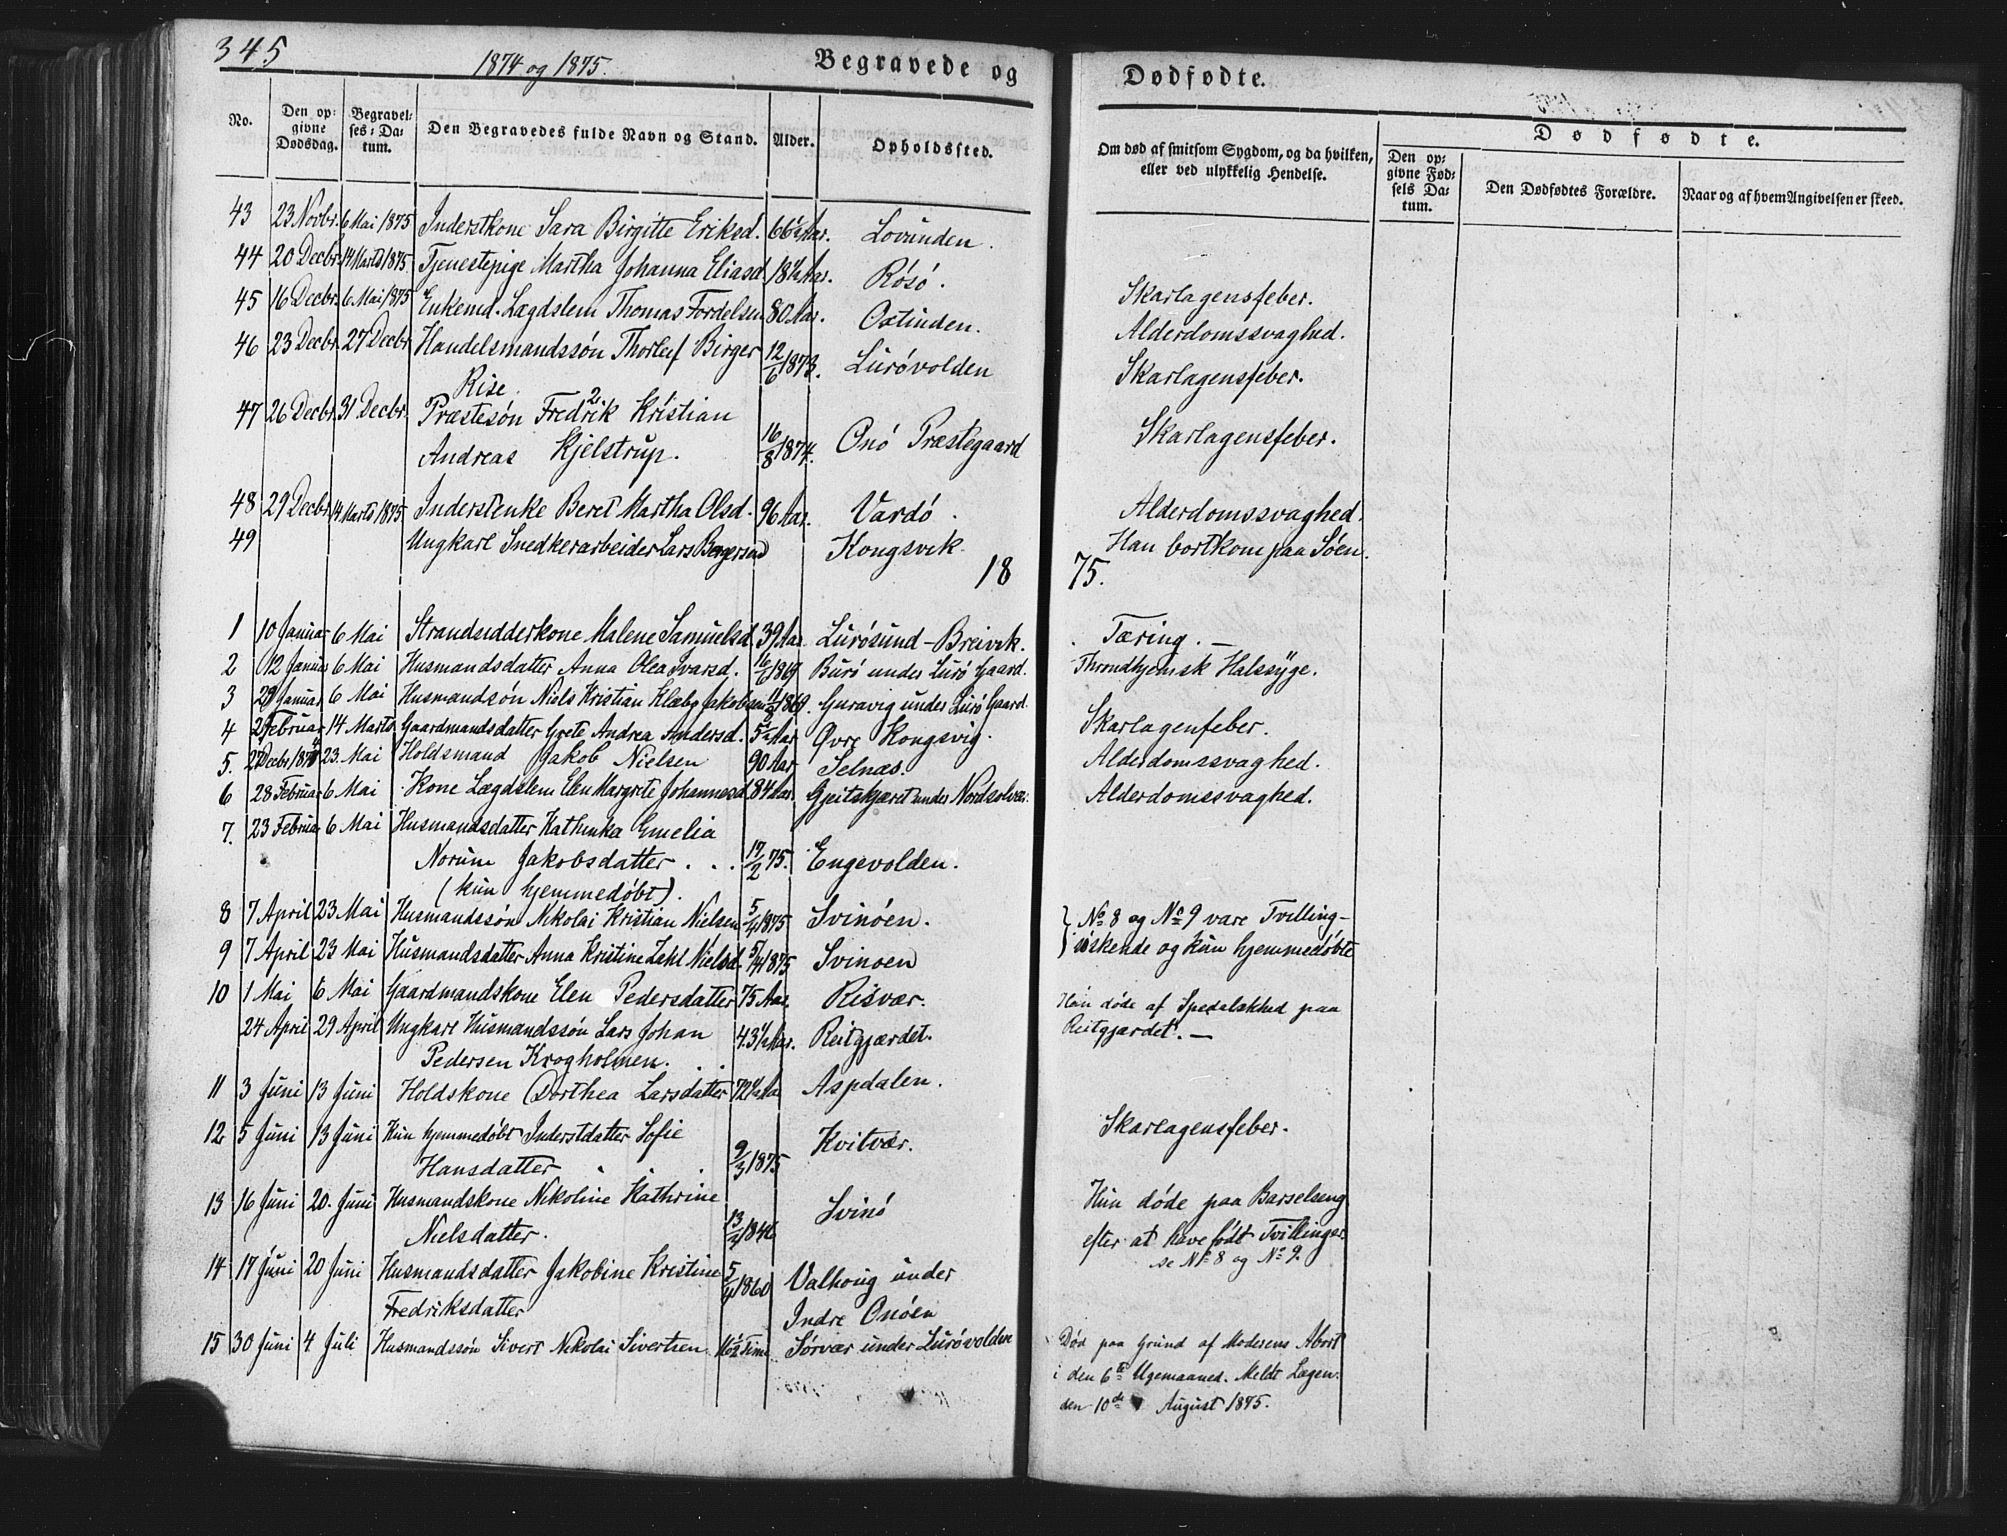 345
1874 og 1875.
Begravede og Dødfødte.
No. | Den opgivne Dødsdag. | Begravelses-Datum. | Den Begravedes fulde Navn og Stand. | Alder. | Opholdssted. | Om død af smitsom Sygdom, og da hvilken, eller ved ulykkelig Hendelse. | Dødfødte. Den opgivne Fødsels Datum. | Den Dødfødtes Forældre. | Naar og af hvem Angivelsen er skeed.
43 23 Novbr. 6 Mai 1875 Inderstkone Sara Birgitte Eriksd. 66½ Aar. Lovunden.
44 20 Decbr. 14 Marts 1875 Tjenestepige Martha Johanna Eliasd. 18½ Aar. Rósó. Skarlagensfeber.
45 16 Decbr. 6 Mai 1875 Enkemd. Lægdslem Thomas Fordelsen 80 Aar. Oxtinden. Alderdomssvaghed.
46 23 Decbr. 27 Decbr Handelsmandssón Thorleif Birger 12/6 1873. Luróvolden Skarlagensfeber.
Rise.
47 26 Decbr. 31 Decbr. Præstesón Fredrik Kristian
Andreas Kjelstrup. 16/8 1874. Onó Præstegaard Skarlagensfeber.
48 29 Decbr. 14 Marts 1875 Inderstenke Beret Martha Olsd. 96 Aar. Vardó. Alderdomssvaghed.
49 Ungkarl Snedkerarbeider Lars Kongsvik. Han bortkom paa Sóen.
1875.
1 10 Januar 6 Mai Strandsidderkone Malene Samuelsd. 39 Aar. Lurósund-Breivik. Tæring. —
2 12 Januar 6 Mai Husmandsdatter Anna Olea Ivarsd. Buró under Luró Gaard. Throndhjemsk Halssyge.
3 29 Januar 6 Mai Husmandsón Niels Kristian Klæbo Jakobsen Guravig under Luró Gaard.
4 2 Februar 14 Marts Gaardmandsdatter Grete Andrea Andersd. 5½ Aar Øvre Kongsvig. Skarlagenfeber.
5. Decbr 1874 23. Mai Holdsmand Jakob Nielsen 90 Aar Selnæs. Alderdomssvaghed.
6 28 Februar 6 Mai Kone Lægdslem Elen Margrete Johannesd. 84 Aar. Gjeitskjæret under Nordsolvær. Alderdomssvaghed.
7. 23 Februar 6 Mai Husmandsdatter Kathinka Emelia
Norum Jakobsdatter . . . 17/2 75. Engevolden.
(kun hjemmedóbt).
8 7 April 23 Mai Husmandssón Nikolai Kristian Nielsen 5/4 1875 Svinóen. No 8 og No 9 vare Tvilling-
9 7 April 23 Mai Husmandsdatter Anna Kristine Zahl Nielsd. 5/4 1875 Svinoen sóskende og kun hjemmedóbte
10 1 Mai 6 Mai Gaardmandskone Elen Pedersdatter 75 Aar. Risvær.
24 April 29 April Ungkarl Husmandssón Lars Johan 43½ Aar. Reitgjærdet. Han dóde af Spedalskhed paa
Pedersen Krogholmen. . . Reitgjærdet. —
11 3 Juni 13 Juni Holdskone Dorthea Larsdatter 72½ Aa Aspdalen.
12 5 Juni 13 Juni Kun hjemmedóbt Inderstdatter Sofie
Hansdatter 9/3 1875 Kvitvær. Skarlagensfeber.
13 16 Juni 20. Juni Husmandskone Nikoline Kathrine
Nielsdatter. 1846 Svinó Hun dóde paa Barselseng
efter at have fódt Tvillinger.
se No 8 og No 9.
14 17 Juni 20 Juni Husmandsdatter Jakobine Kristine 5/4 1860 Valhoug under
Fredriksdatter Indre Onóen
15 30 Juni 4 Juli Husmandssón Sivert Nikolai Sivertsen. Time Sórvær under Luróvolden Dód paa Grund af Moderens Abort
i den 6te Ugemaaned. Meldt Lægen.
den 10de August 1875.